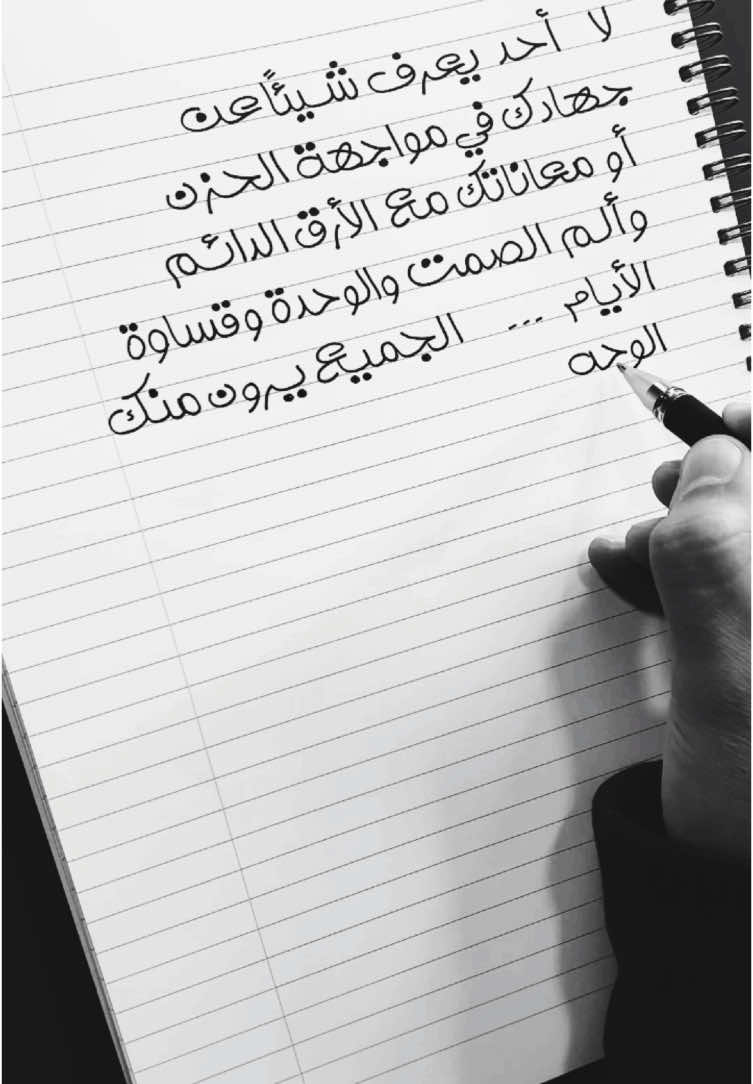 لا أحد يعرف شيئاً عن
جهادك في مواجهة الحزن
أو معاناتك مع الأرق الدائم
وألم الصمت والوحدة وقساوة
الأيام ... الجميع يرون منك
الوجه